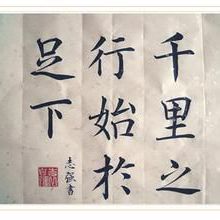 千里之
行始於
足下
志强書